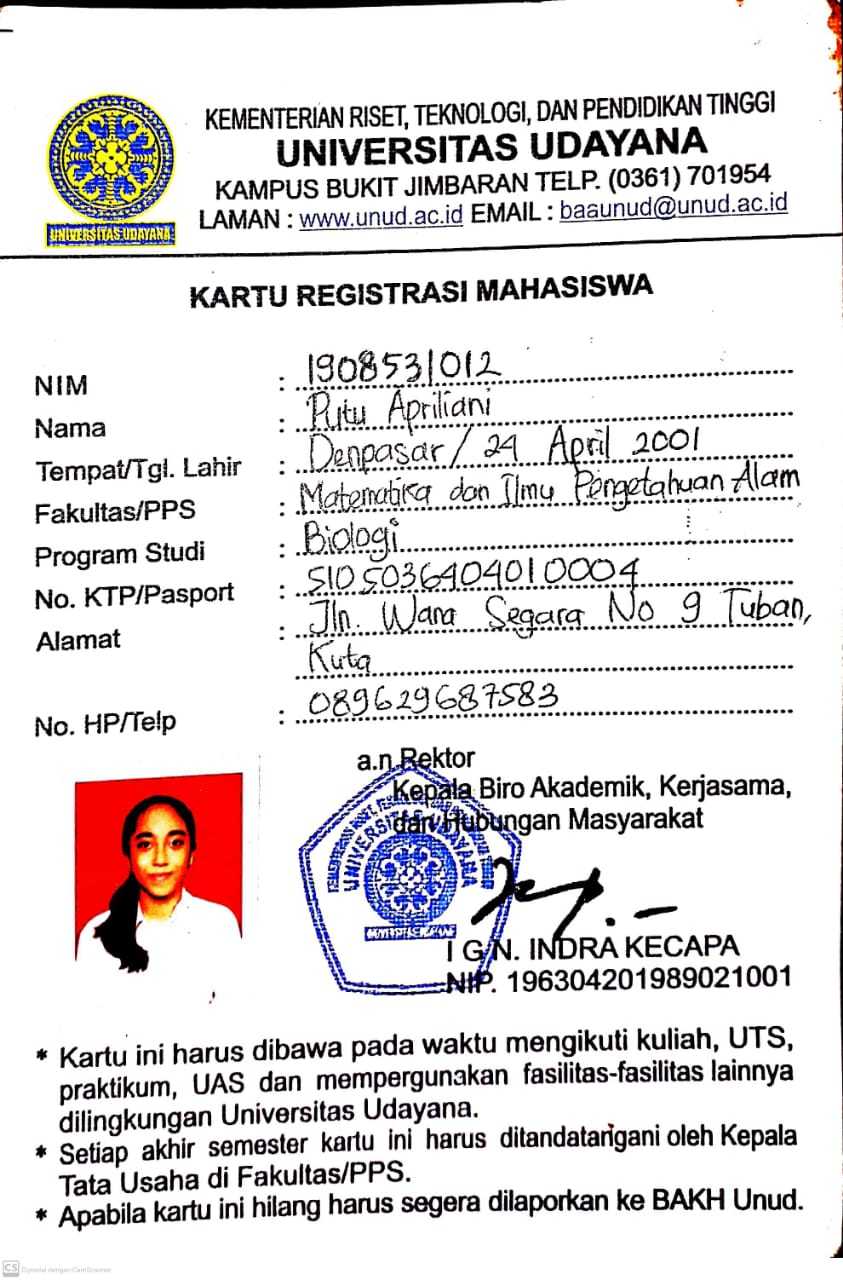 KEMENTERIAN RISET, TEKNOLOGI, DAN PENDIDIKAN TINGGI
UNIVERSITAS UDAYANA
KAMPUS BUKIT JIMBARAN TELP. (0361) 701954
LAMAN : www.unud.ac.id EMAIL : baaunud@unud.ac.id
UNIVERSITAS UDAYANA
KARTU REGISTRASI MAHASISWA
NIM : 1908531012
Nama : Putu Apriliani
Tempat/Tgl. Lahir : Denpasar / 24 April 2001
Fakultas/PPS : Matematika dan Ilmu Pengetahuan Alam
Program Studi : Biologi
No. KTP/Pasport : 5105036404010004
Alamat : Jln. Wana Segara No 9 Tuban,
Kuta
No. HP/Telp : 089629687583
a.n Rektor
Kepala Biro Akademik, Kerjasama,
dan Hubungan Masyarakat
UNIVERSITAS UDAYANA
I G.N. INDRA KECAPA
NIP. 196304201989021001
* Kartu ini harus dibawa pada waktu mengikuti kuliah, UTS,
praktikum, UAS dan mempergunakan fasilitas-fasilitas lainnya
dilingkungan Universitas Udayana.
* Setiap akhir semester kartu ini harus ditandatangani oleh Kepala
Tata Usaha di Fakultas/PPS.
* Apabila kartu ini hilang harus segera dilaporkan ke BAKH Unud.
CS Dipindai dengan CamScanner